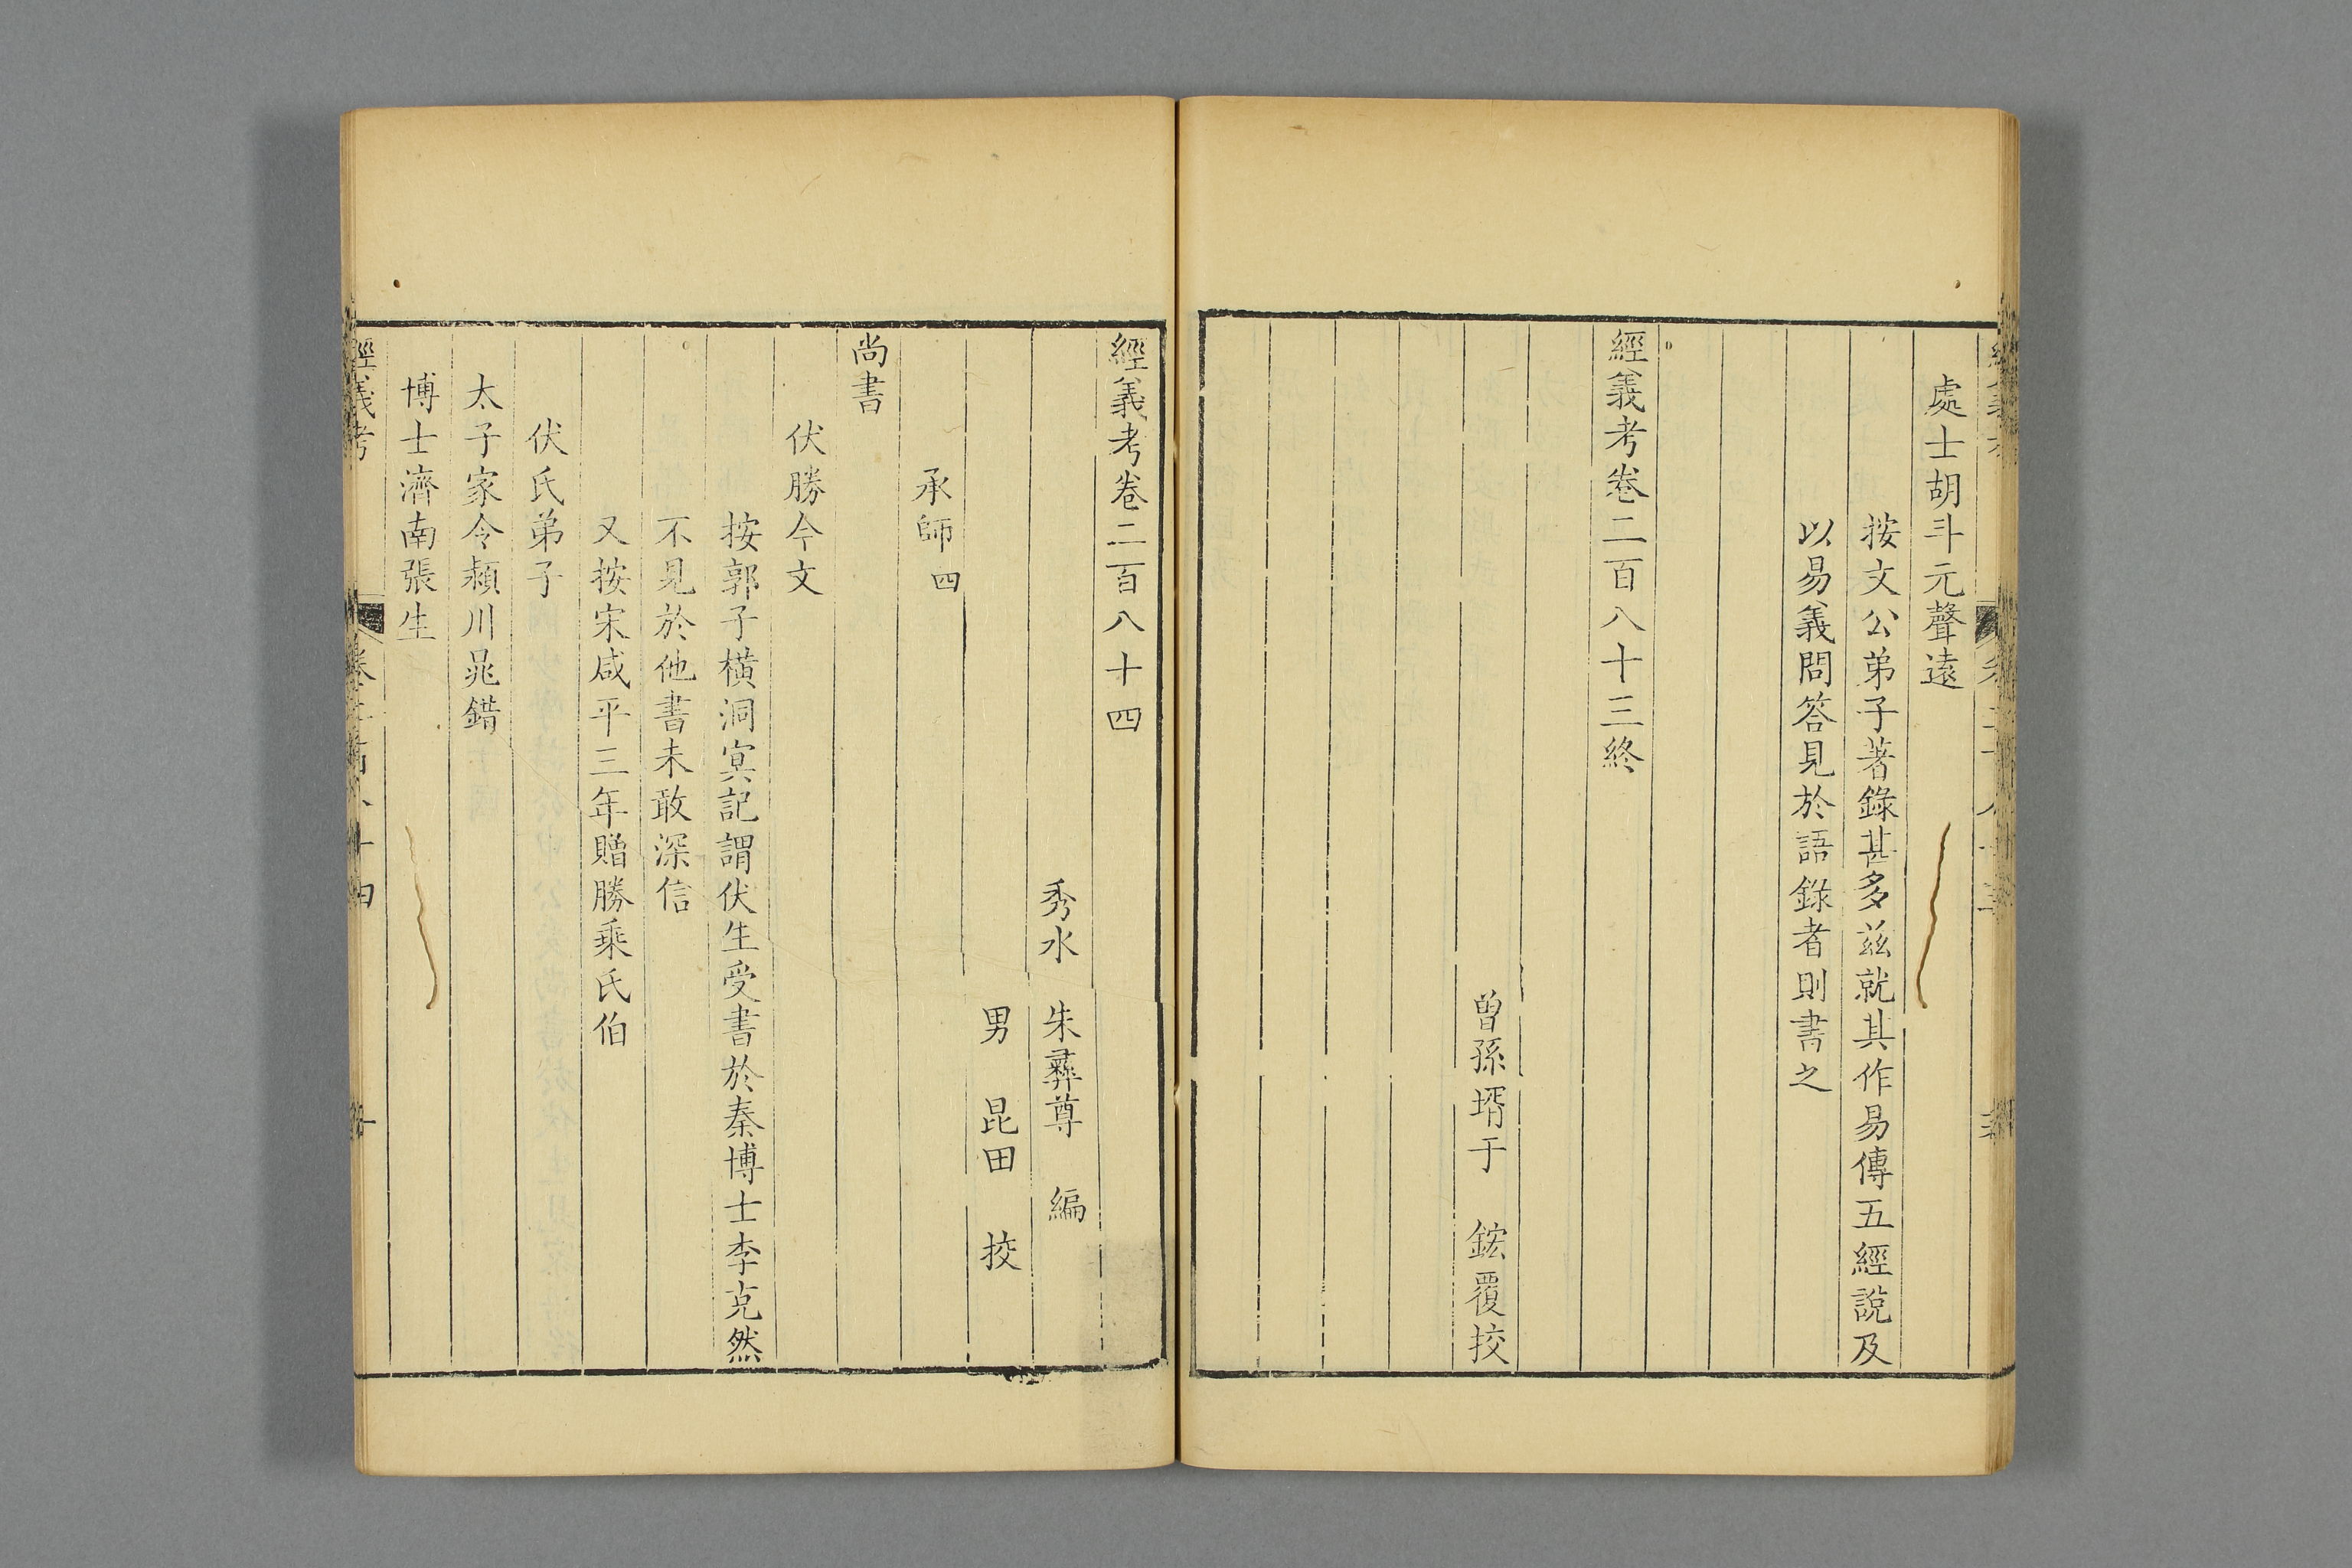 處士胡斗元聲遠
按文公弟子著錄甚多茲就其作易傳五經說及
以易義問答見於語錄者則書之
經義考卷二百八十三終
曾孫壻于 鋐覆挍
經義考卷二百八十四
秀水 朱彝尊 編
男 昆田 挍
承師四
尚書
伏勝今文
按郭子橫洞冥記謂伏生受書於秦博士李克然
不見於他書未敢深信
又按宋咸平三年贈勝乘氏伯
伏氏弟子
太子家令潁川晁錯
博士濟南張生
經義考 卷二百八十四